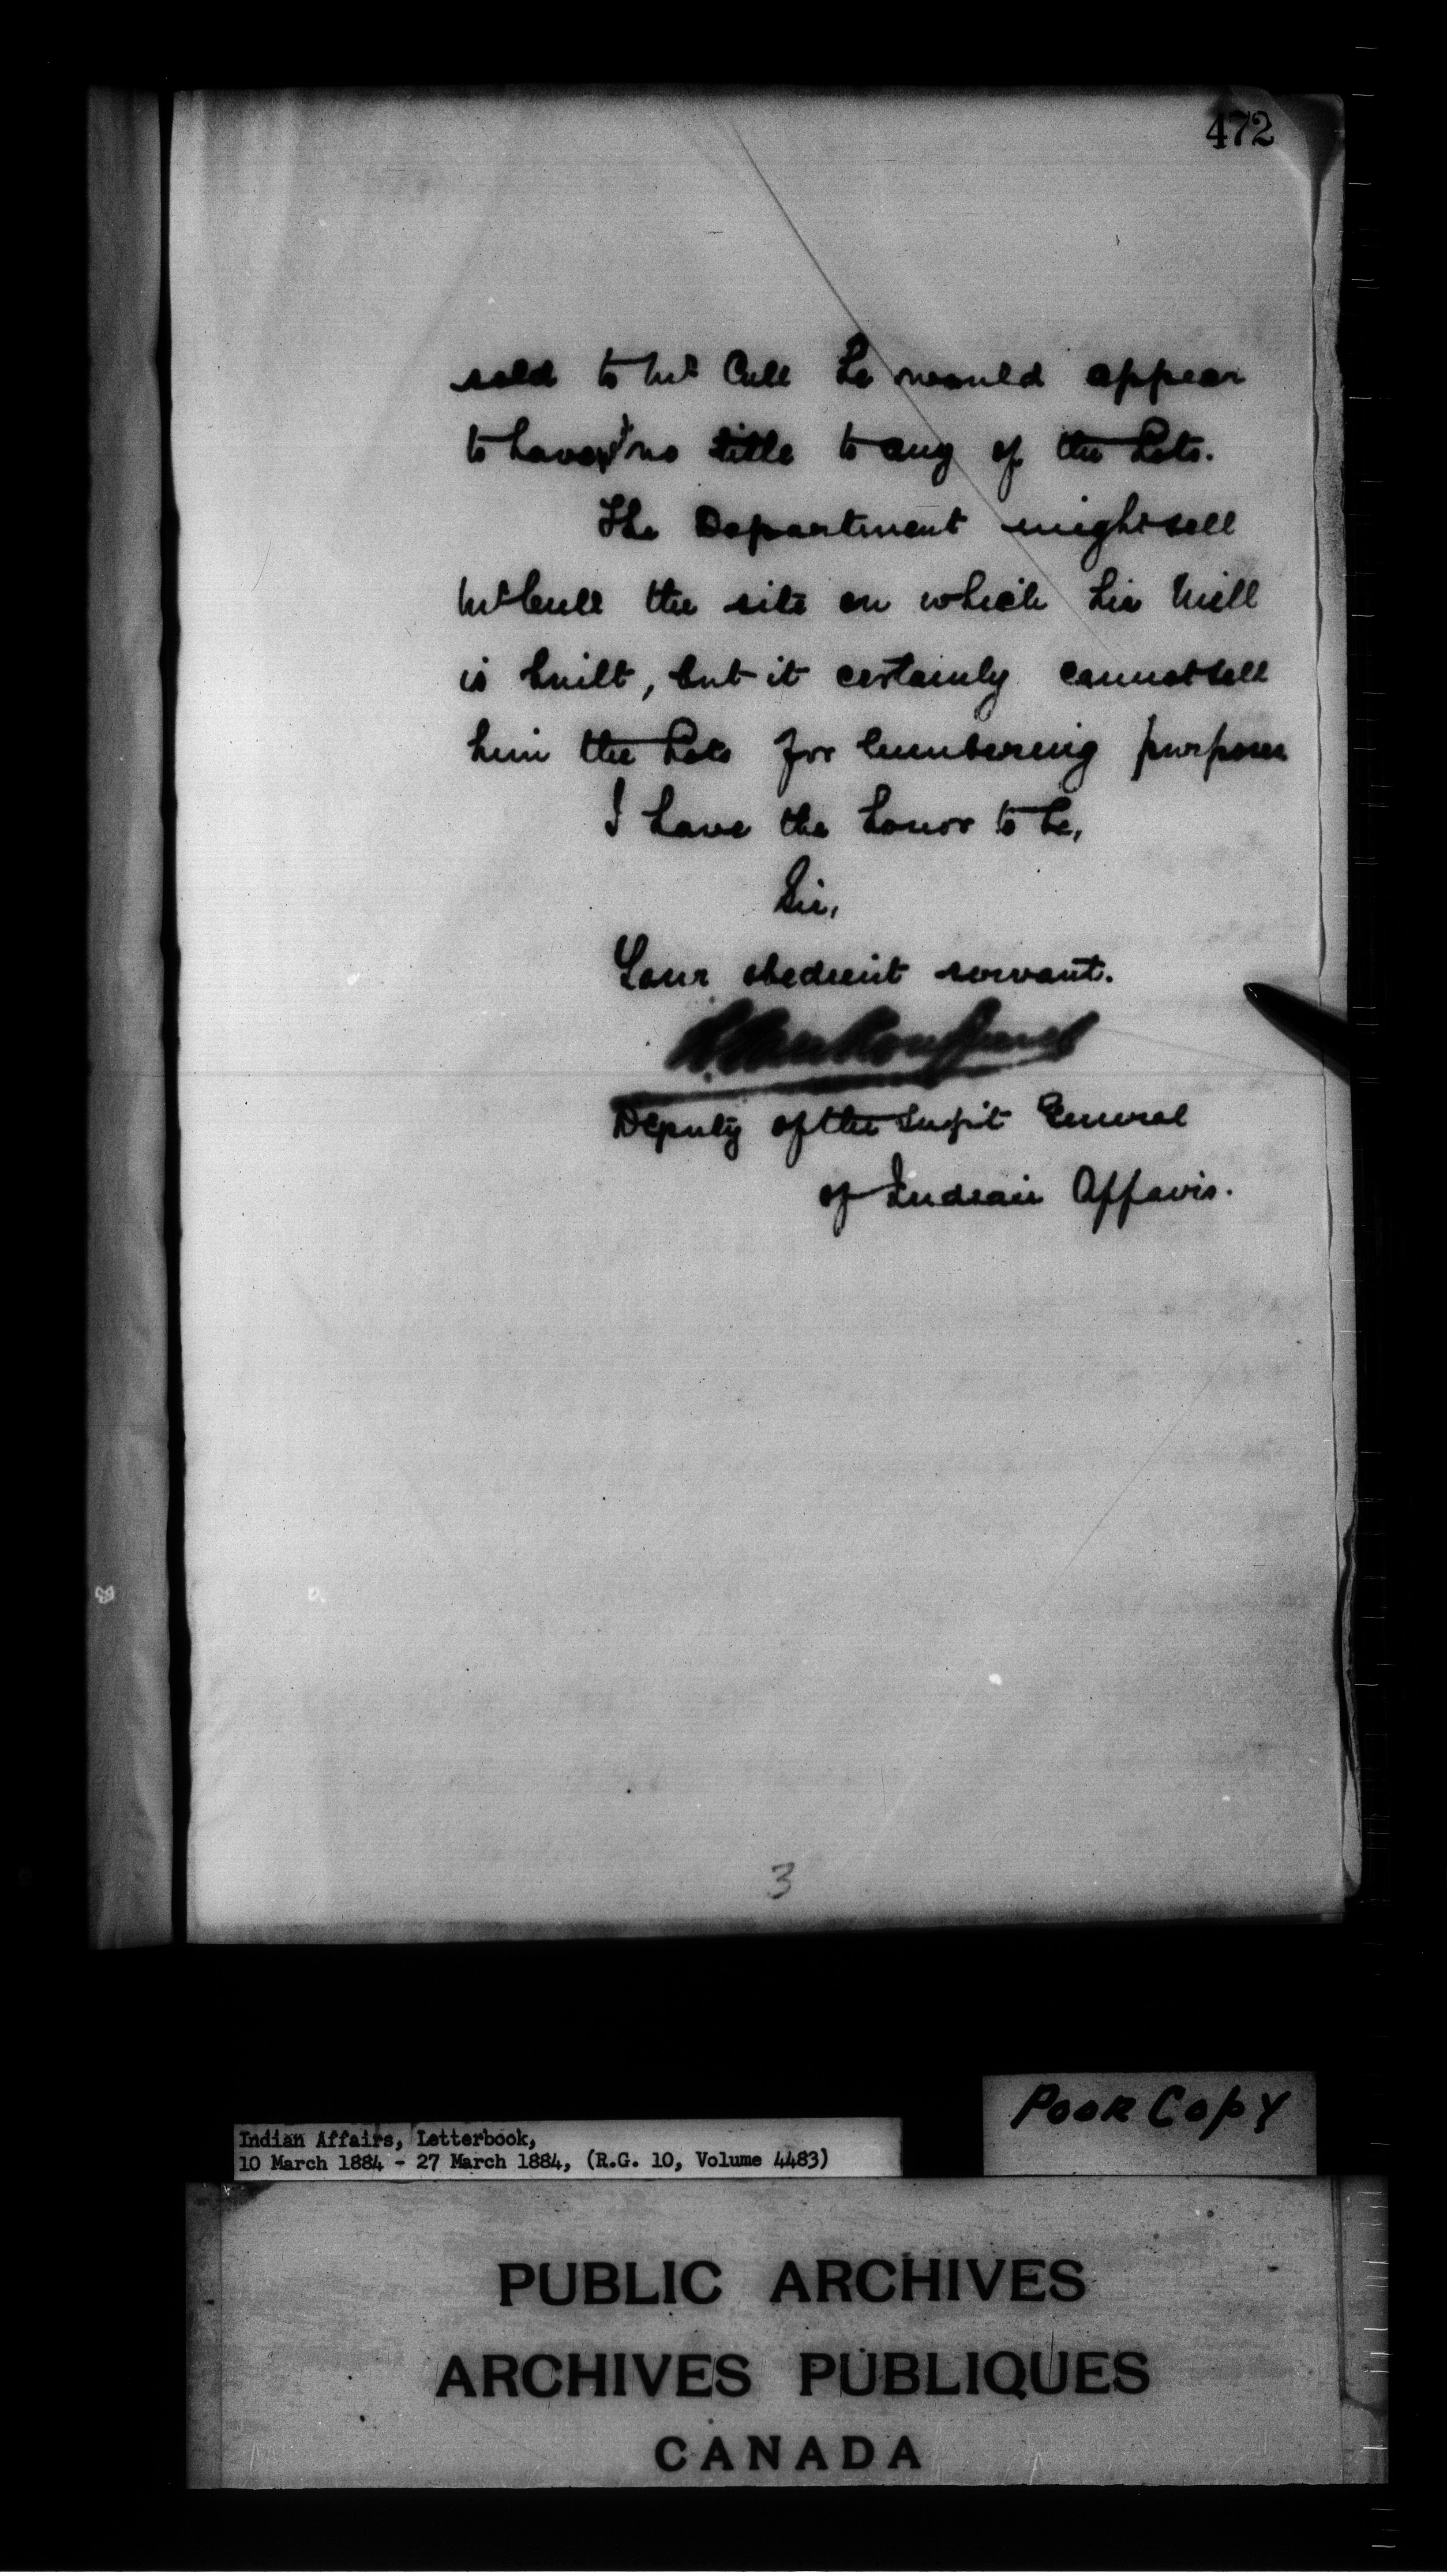 472
sold to Mr Cull he would appear
to have no title to any of the Lots.
The Department might sell
Mr Cull the site on which his Mill
is built, but it certainly cannot sell
him the Lots for lumbering purposes
I have the honor to be,
Sir,
Your obedient servant.
L. Vankoughnet
Deputy of the Supt General
of Indian Affairs.
3
Poor Copy
Indian Affairs, Letterbook,
10 March 1884 - 27 March 1884, (R.G. 10, Volume 4483)
PUBLIC ARCHIVES
ARCHIVES PUBLIQUES
CANADA